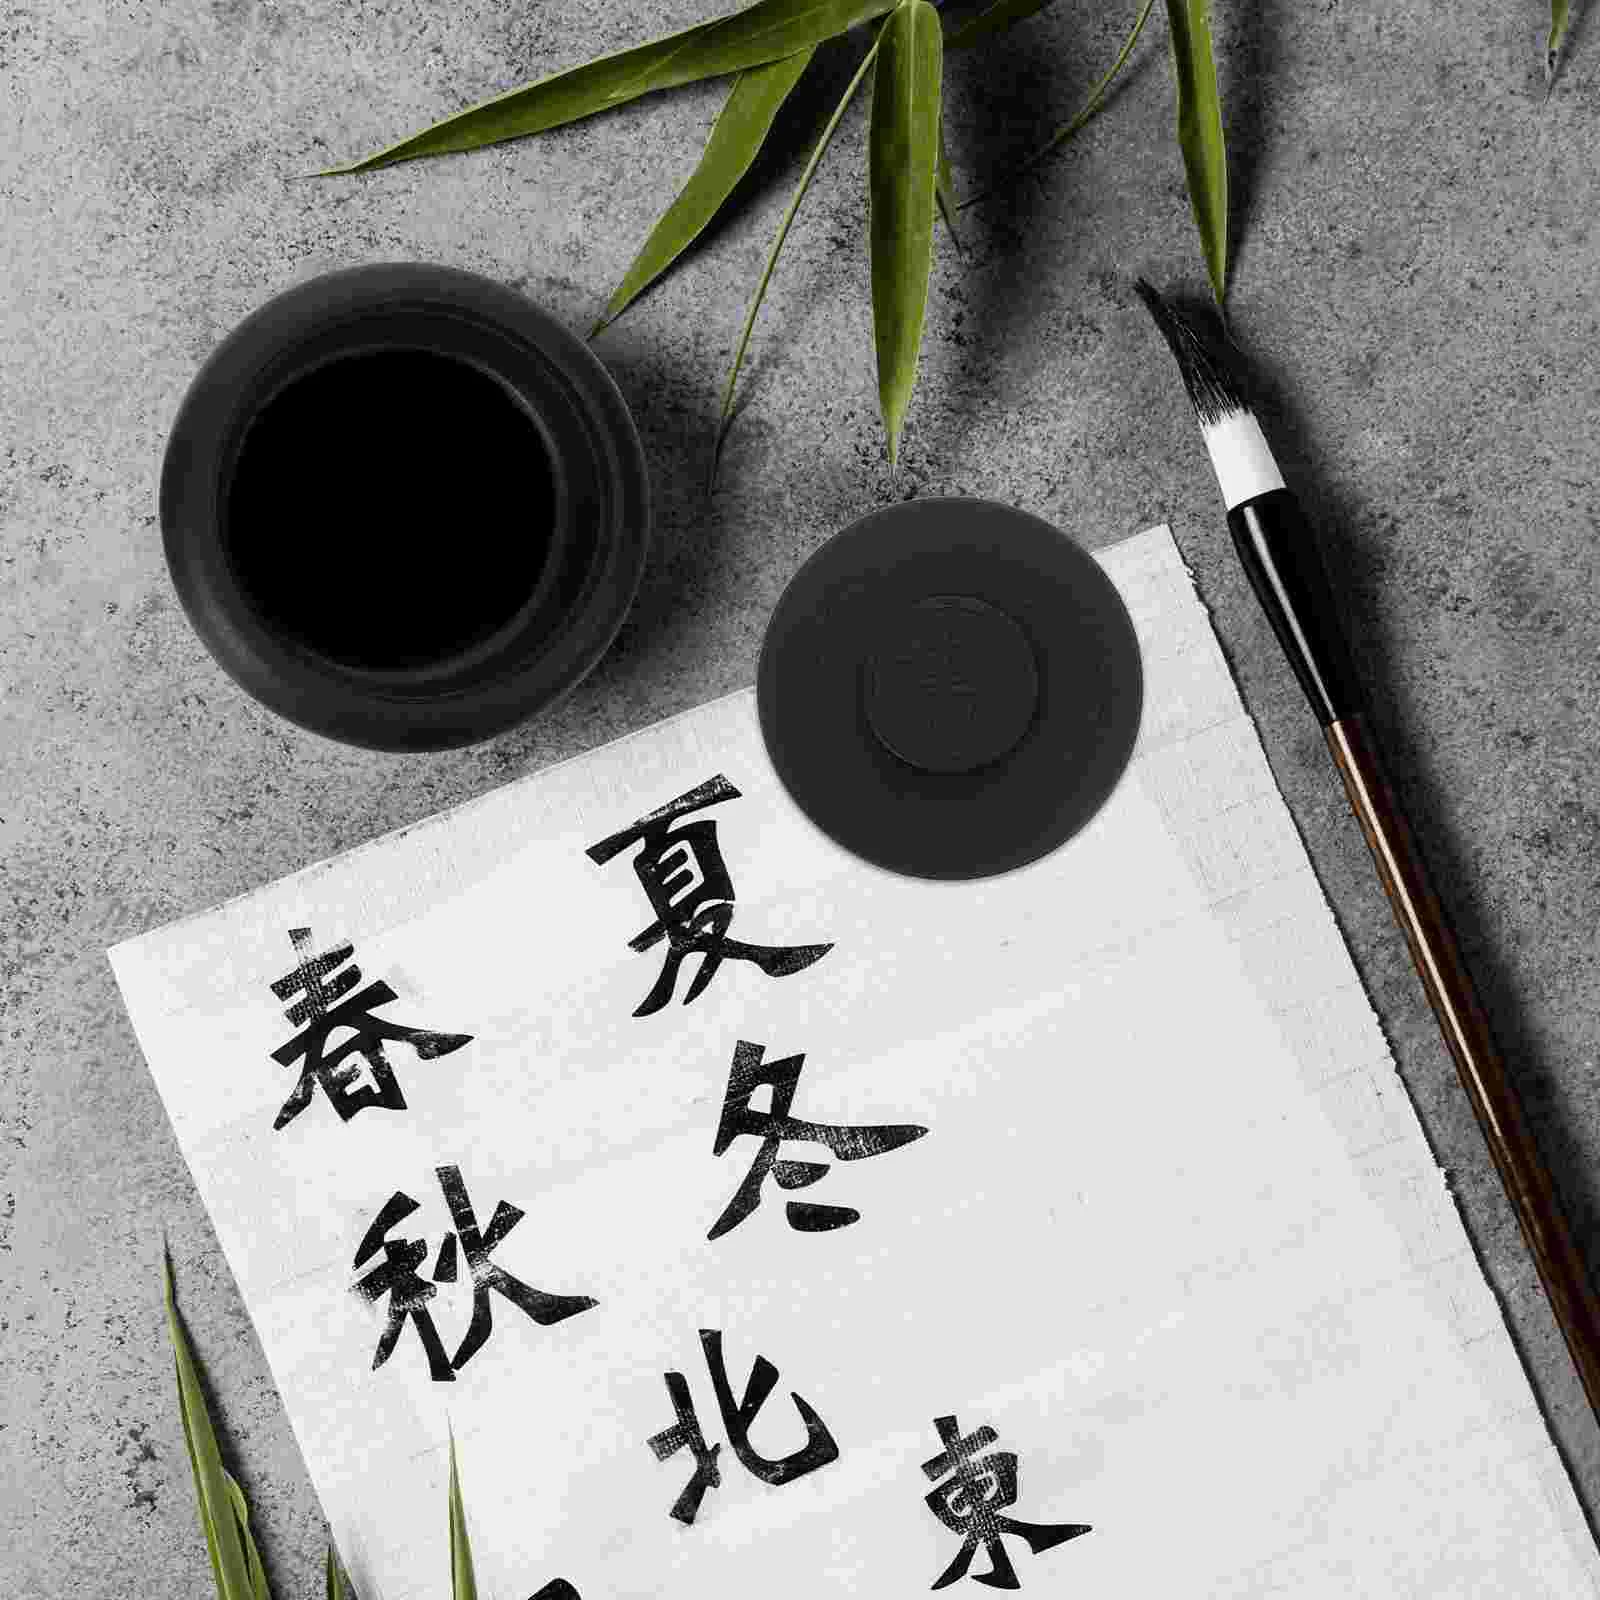 春 夏
秋 冬
北 東